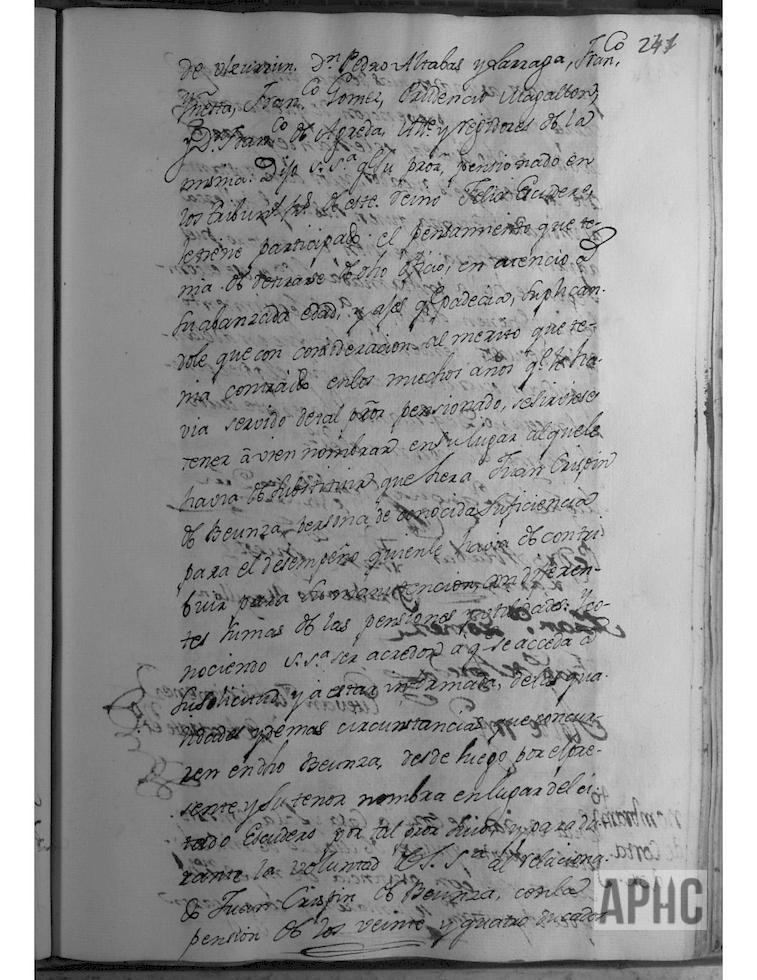 241
de Uleurrun. Dn. Pedro Altabas y Larraga, Franco
Ynesta, Franco Gomez, Prudencio Magallon,
y Dn. Franco de Agreda, Alte. y rejidores de la
misma: Dijo S. Sa. q. su pror. pensionado en
los tribuns. rs. de este reino Felix Escudero,
le tiene participado el pensamiento que te-
nia de retirarse de dho oficio, en atencio a
su abanzada edad, y ajes qe padecia, suplican-
dole que con consideracion al merito que te-
nia contraido en los muchos años qe. le ha-
via servido de tal pror. pensionado, se sirviese
tener a vien nombrar en su lugar al que le
havia de substituir que hera Juan Crispin
de Beunza, persona de conocida suficiencia
para el desempeño quien le havia de contri-
buir para su manutencion con diferen-
tes sumas de las pensiones
nociendo S. Sa. ser acredor a q. se acceda a
su solicitud, y a estar informada, de las qua-
lidades y demas circunstancias que concur-
ren en dho Beunza, desde luego por el pre-
sente y su tenor nombra en lugar del ci-
tado Escudero por tal pror. suio, y para du-
rante la voluntad de S. Sa. al relaciona-
do Juan Crispin de Beunza, con la
pension de los veinte y quatro ducados
APHC